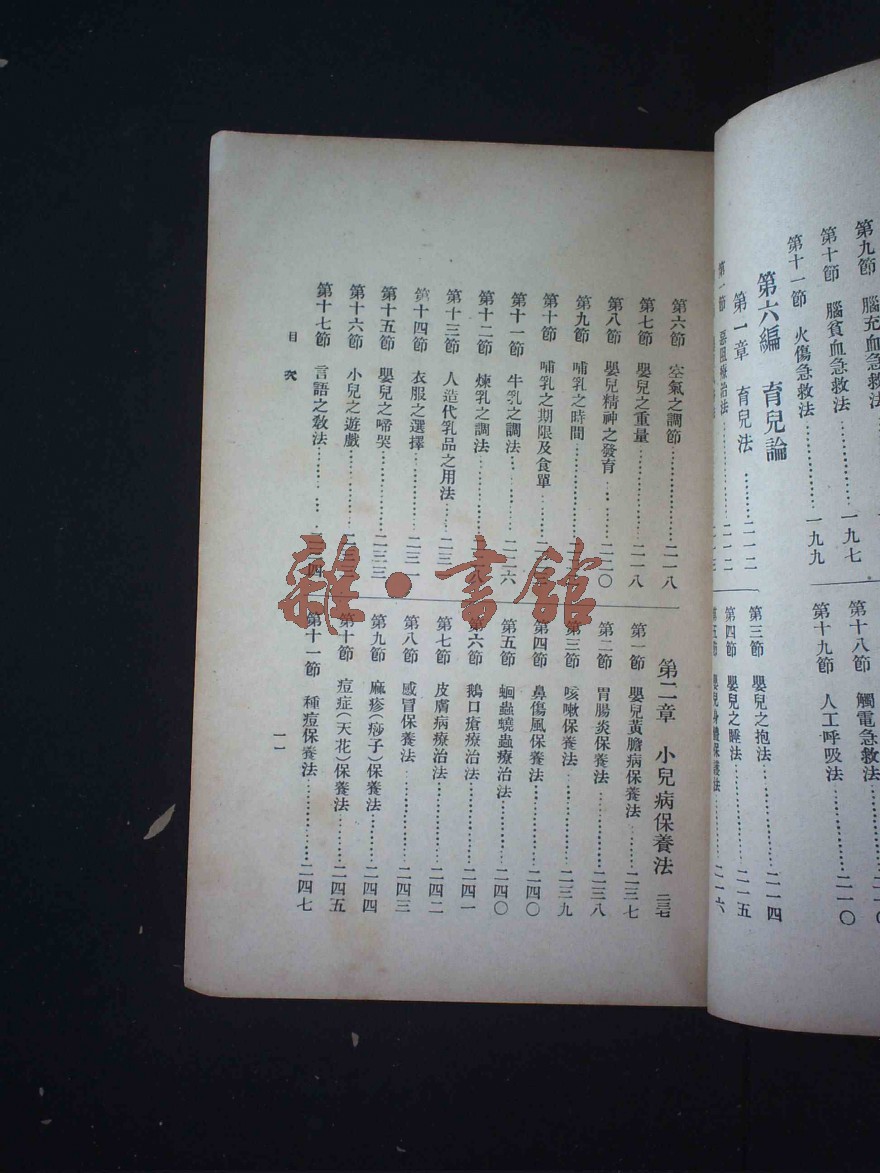 第九節 腦充血急救法
第十節 腦貧血急救法 一九七
第十一節 火傷急救法 一九九
第六編 育兒論
第一章 育兒法 二一二
第一節
第十八節 觸電急救法
第十九節 人工呼吸法 二一〇
第三節 嬰兒之抱法 二一四
第四節 嬰兒之睡法 二一五
第五節 嬰兒身體保護法 二一六
第六節 空氣之調節 二一八
第七節 嬰兒之重量 二一八
第八節 嬰兒精神之發育 二二〇
第九節 哺乳之時間
第十節 哺乳之期限及食單
第十一節 牛乳之調法 二二六
第十二節 煉乳之調法
第十三節 人造代乳品之用法
第十四節 衣服之選擇
第十五節 嬰兒之啼哭 二三三
第十六節 小兒之遊戲
第十七節 言語之教法
第二章 小兒病保養法 二三七
第一節 嬰兒黃膽病保養法 二三七
第二節 胃腸炎保養法 二三八
第三節 咳嗽保養法 二三九
第四節 鼻傷風保養法 二四〇
第五節 蛔蟲蟯蟲療治法 二四〇
第六節 鵝口瘡療治法 二四一
第七節 皮膚病療治法 二四二
第八節 感冒保養法 二四三
第九節 麻疹(痧子)保養法 二四四
第十節 痘症(天花)保養法 二四五
第十一節 種痘保養法 二四七
目次
一一
雜·書館